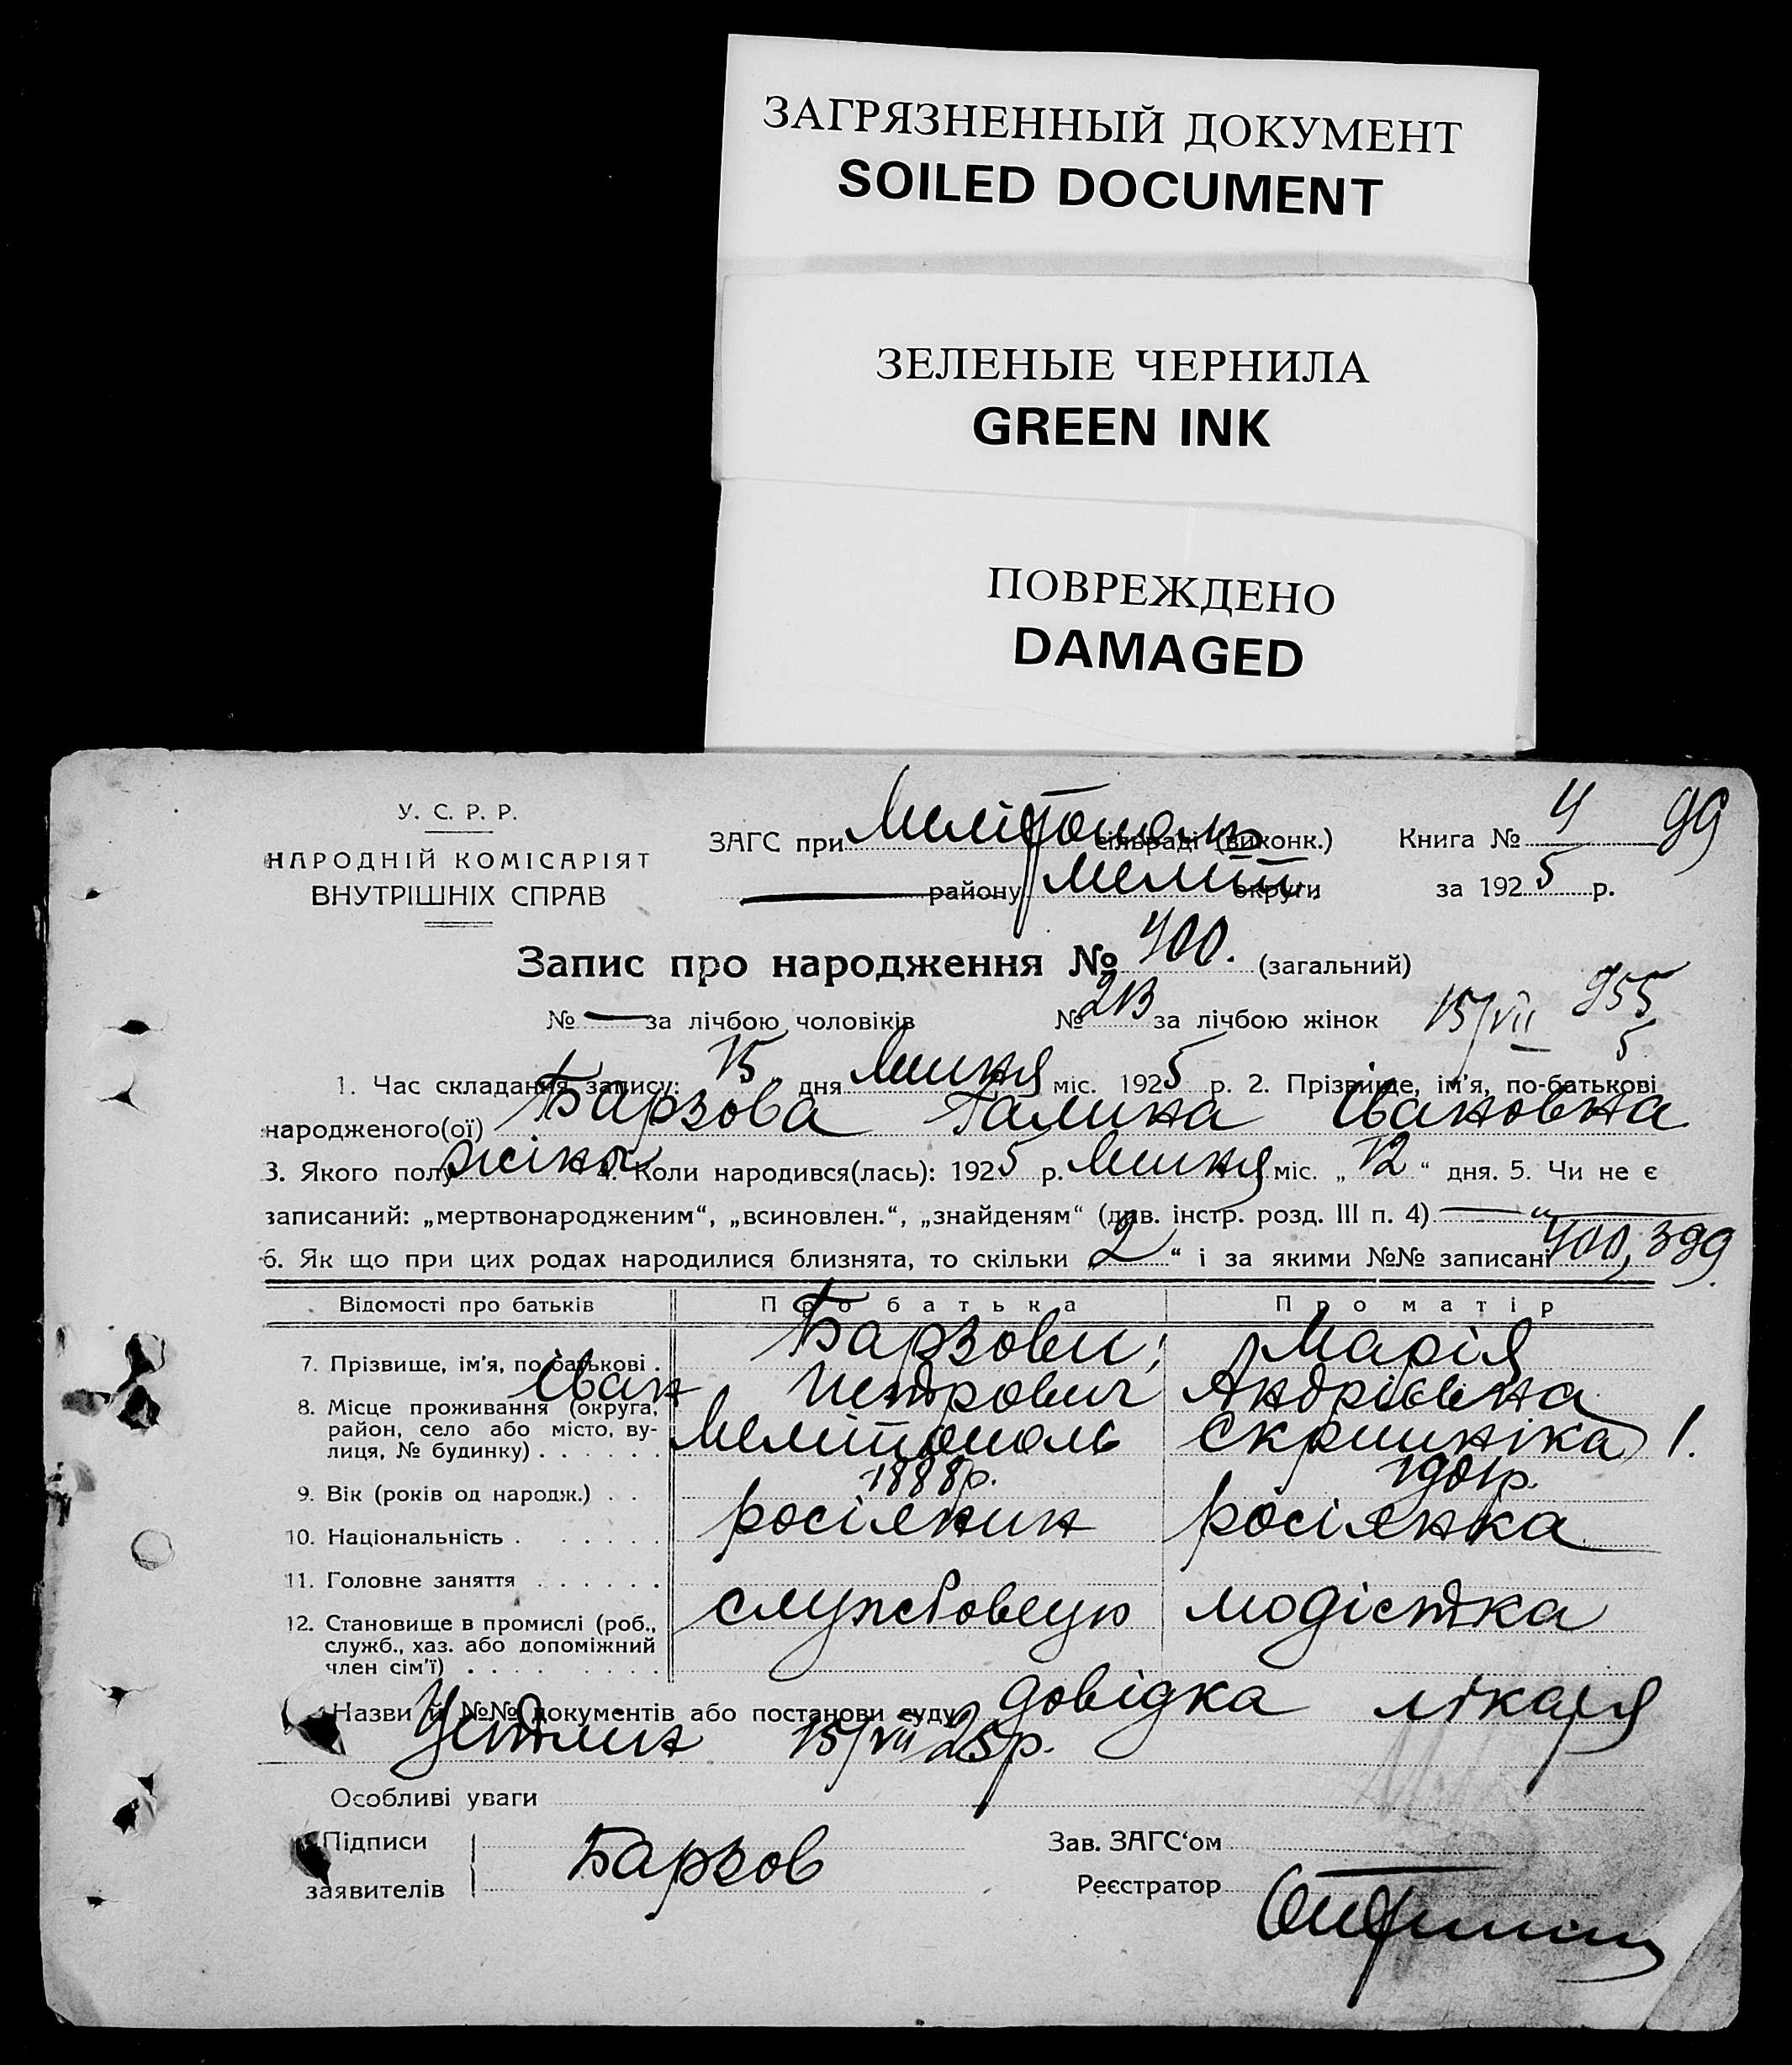 ЗАГРЯЗНЕННЫЙ ДОКУМЕНТ
SOILED DOCUMENT
ЗЕЛЕНЫЕ ЧЕРНИЛА
GREEN INK
ПОВРЕЖДЕНО
DAMAGED
У. С. Р. Р.
НАРОДНІЙ КОМІСАРІЯТ
ВНУТРІШНІХ СПРАВ
ЗАГС при Мелітополь сільраді (виконк.) Книга № 4 99
району Меліт. округи за 1925 р.
Запис про народження № 400. (загальний)
№ — за лічбою чоловіків № 213 за лічбою жінок 15/VII 955
5
1. Час складання запису: 15 дня Липня міс. 1925 р. 2. Прізвище, ім'я, по-батькові
народженого(ої) Барзова Галина Івановна
3. Якого полу жіноч 4. Коли народився(лась): 1925 р. Липня міс. „ 12 “ дня. 5. Чи не є
записаний: „мертвонародженим“, „всиновлен.“, „знайденям“ (див. інстр. розд. III п. 4) — „ —
6. Як що при цих родах народилися близнята, то скільки „ 2 “ і за якими №№ записані 400, 399
Відомості про батьків Про батька Про матір
7. Прізвище, ім'я, по батькові . Барзови; Марія
Іван Петрович Андріївна
8. Місце проживання (округа,
район, село або місто, ву-
лиця, № будинку) . . . . . . Мелітополь Скрипніка 1.
9. Вік (років од народж.) . . 1888р. 1901р.
10. Національність . . . . . . росіянин росіянка
11. Головне заняття . . . . . .
12. Становище в промислі (роб.,
служб., хаз. або допоміжний
член сім'ї) . . . . . . . службовець модістка
Назви й №№ документів або постанови суду довідка лікаря
15/VII 25р.
Особливі уваги
Підписи
заявителів Барзов
Зав. ЗАГС'ом
Реєстратор